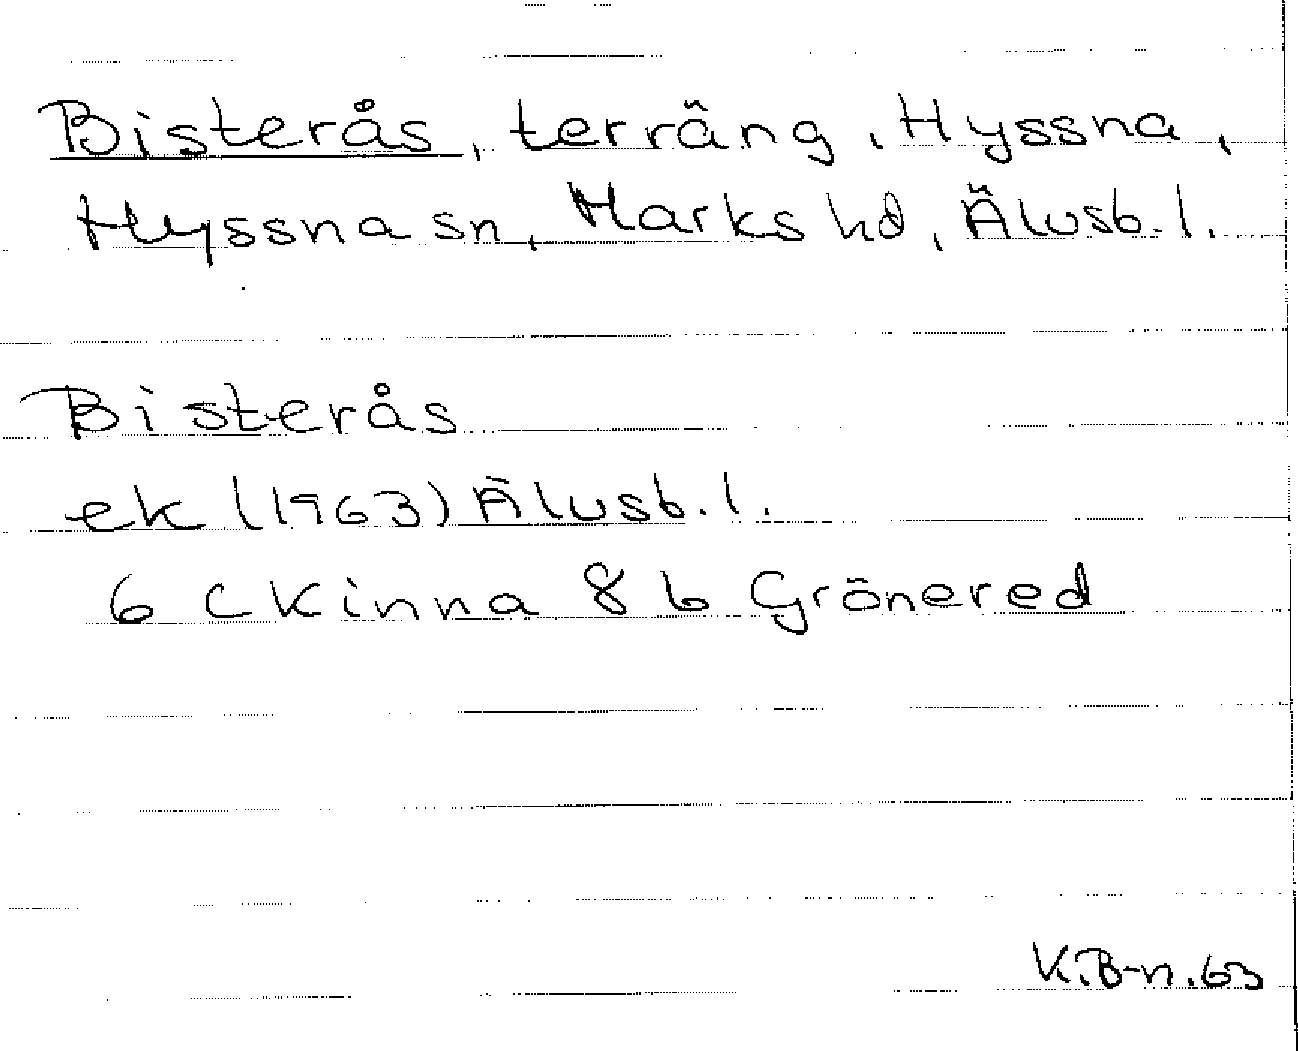 Bisterås, terräng, Hyssna,
Hyssna sn, Marks hd, Älvsb. l.
Bisterås
ek (1963) Älvsb. l.
6 C Kinna 8 b Grönered
K.B-n. 63